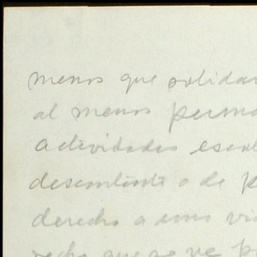 menos que solidar
al menos perma
actividades escol
descontento o de p
derecho a una vi
recho que se ve p